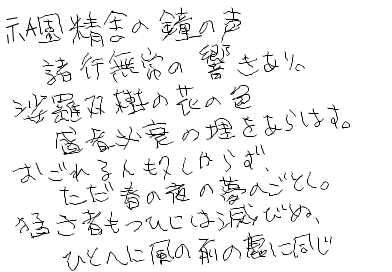 祇園精舎の鐘の声
諸行無常の響きあり。
娑羅双樹の花の色
盛者必衰の理をあらはす。
おごれる人も久しからず、
ただ春の夜の夢のごとし。
猛き者もつひには滅びぬ、
ひとへに風の前の塵に同じ